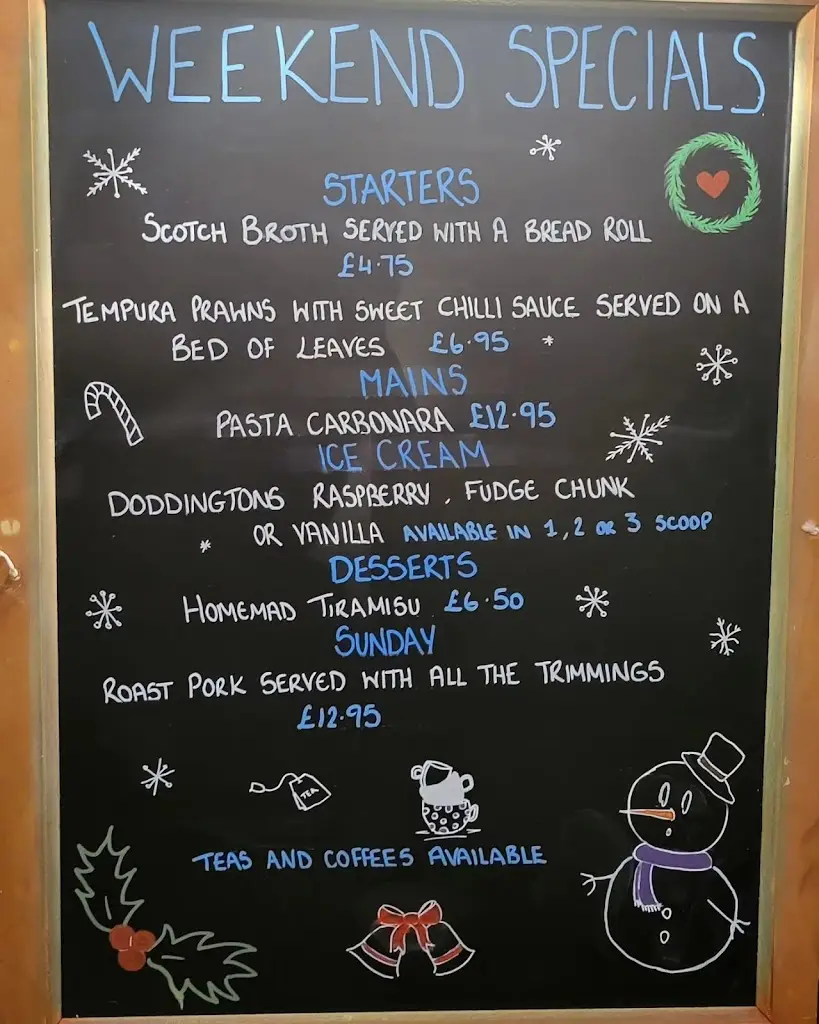 WEEKEND SPECIALS
STARTERS
SCOTCH BROTH SERVED WITH A BREAD ROLL
£4.75
TEMPURA PRAWNS WITH SWEET CHILLI SAUCE SERVED ON A
BED OF LEAVES £6.95
MAINS
PASTA CARBONARA £12.95
ICE CREAM
DODDINGTONS RASPBERRY, FUDGE CHUNK
OR VANILLA AVAILABLE IN 1, 2 OR 3 SCOOP
DESSERTS
HOMEMAD TIRAMISU £6.50
SUNDAY
ROAST PORK SERVED WITH ALL THE TRIMMINGS
£12.95
TEA
TEAS AND COFFEES AVAILABLE